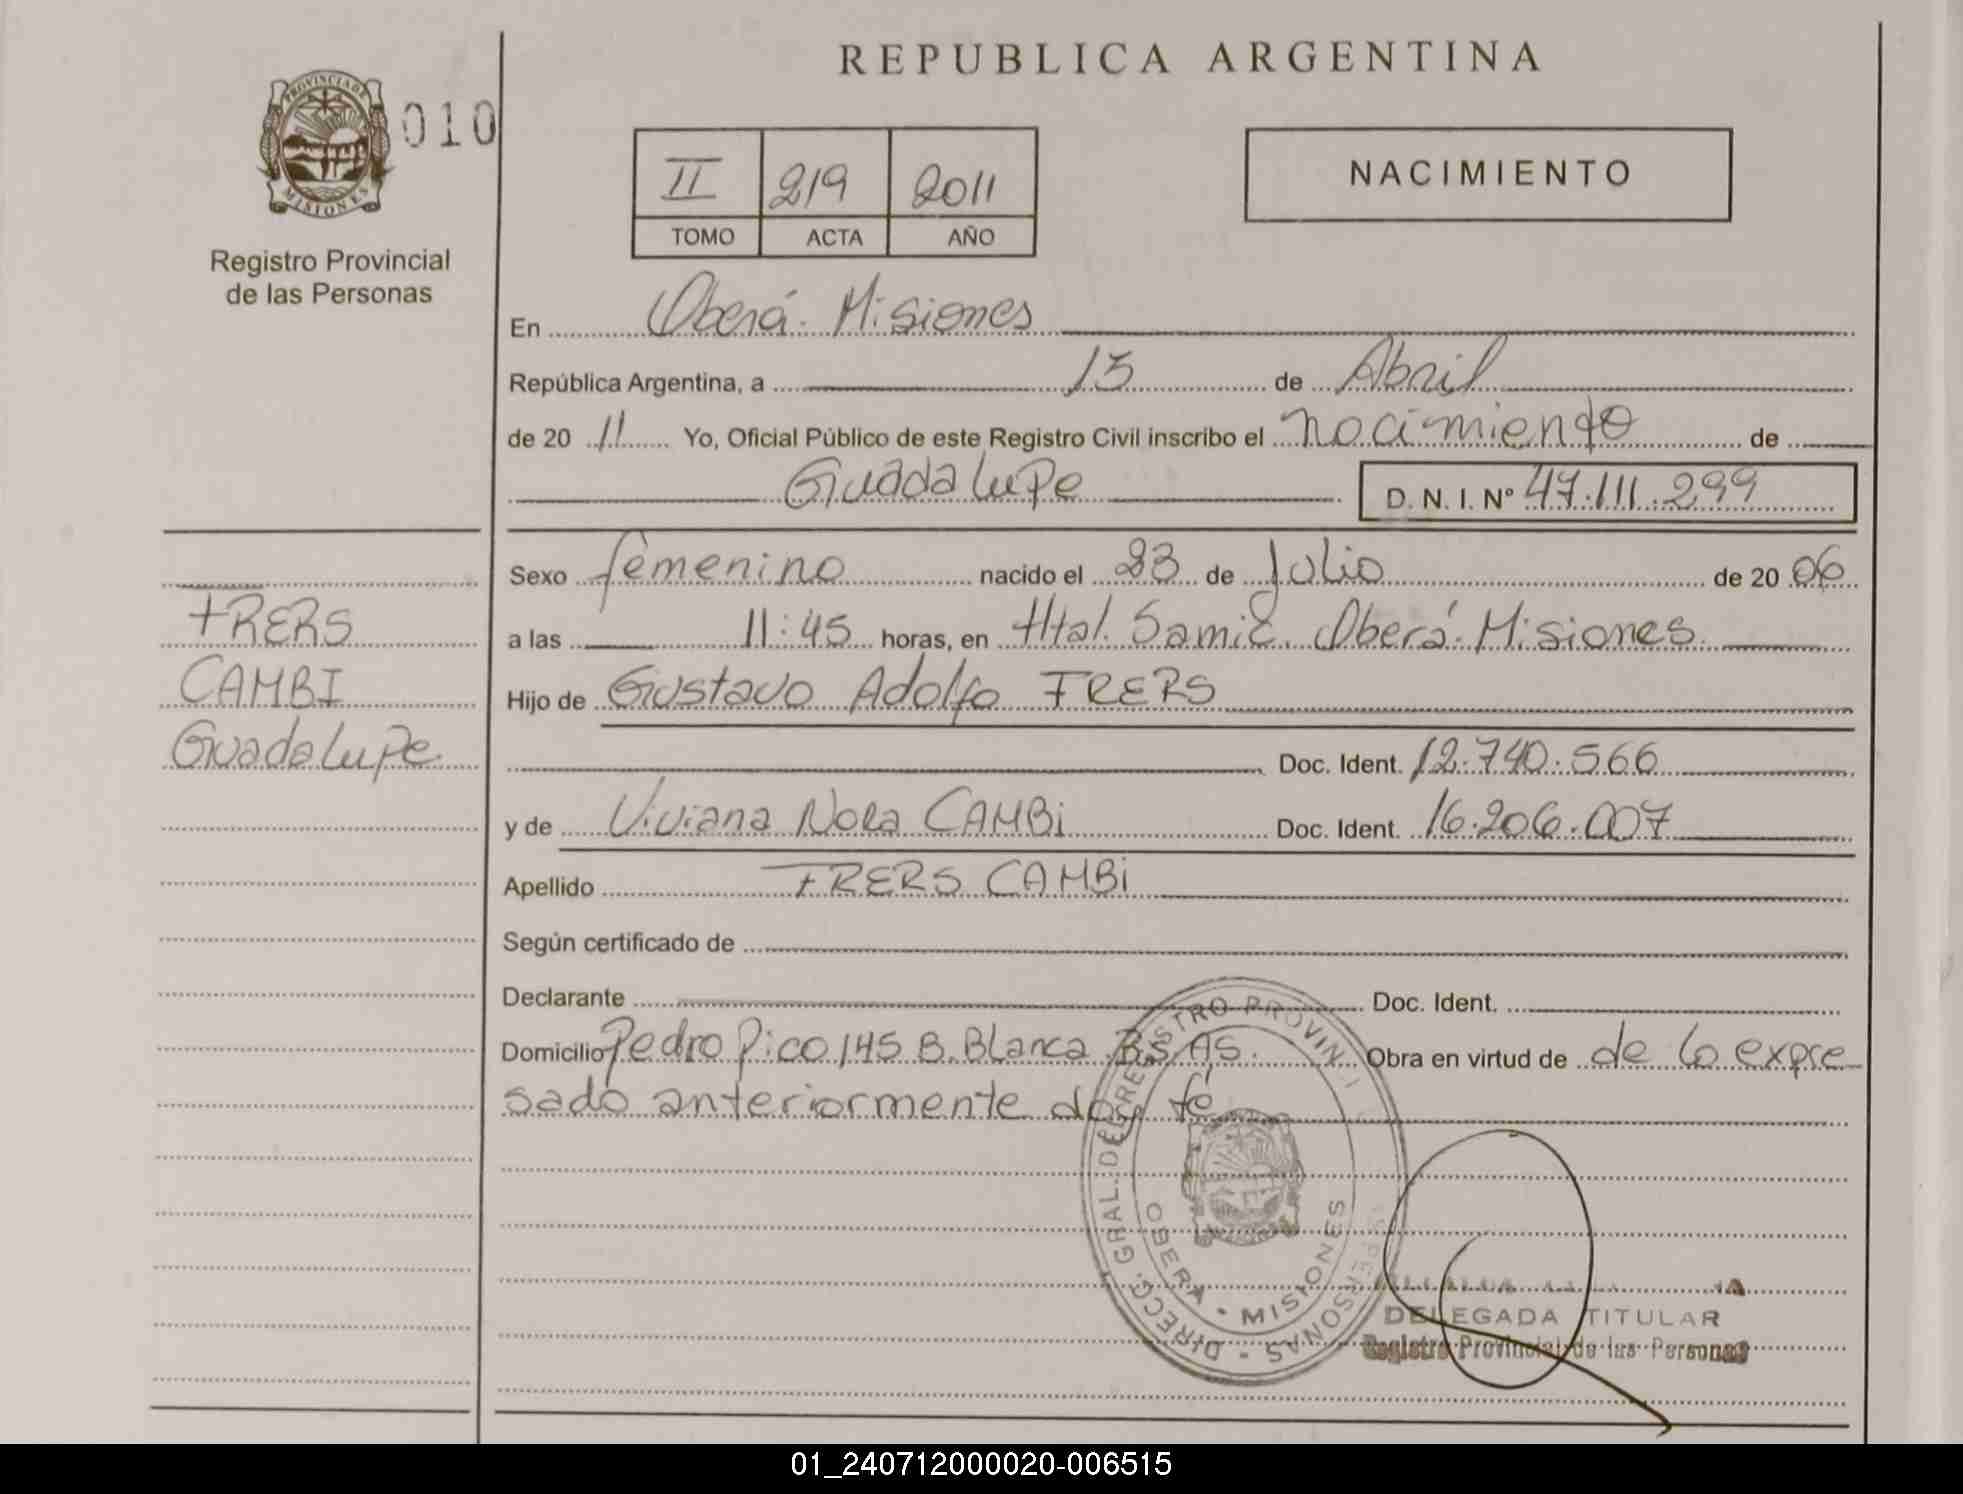 REPUBLICA ARGENTINA
PROVINCIA DE
MISIONES
010
Registro Provincial
de las Personas
II 219 2011
TOMO ACTA AÑO
NACIMIENTO
En Oberá. Misiones
República Argentina, a 15 de Abril
de 20 11 Yo, Oficial Público de este Registro Civil inscribo el nacimiento de
Guadalupe D. N. I. Nº 47.111.299
FRERS
CAMBI
Guadalupe
Sexo femenino nacido el 23 de Julio de 20 06
a las 11:45 horas, en Htal. Samic. Oberá. Misiones.
Hijo de Gustavo Adolfo FRERS
Doc. Ident. 12.740.566
y de Viviana Nora CAMBi Doc. Ident. 16.206.007
Apellido FRERS CAMBi
Según certificado de
Declarante Doc. Ident.
Domicilio Pedro Pico 145 B. Blanca Bs. As. Obra en virtud de de lo expre
sado anteriormente doy fé
DIRECC. GRAL. DEL REGISTRO PROVINCIAL PERSONAS
OBERA - MISIONES
DELEGADA TITULAR
Registro Provincial de las Personas
01_240712000020-006515